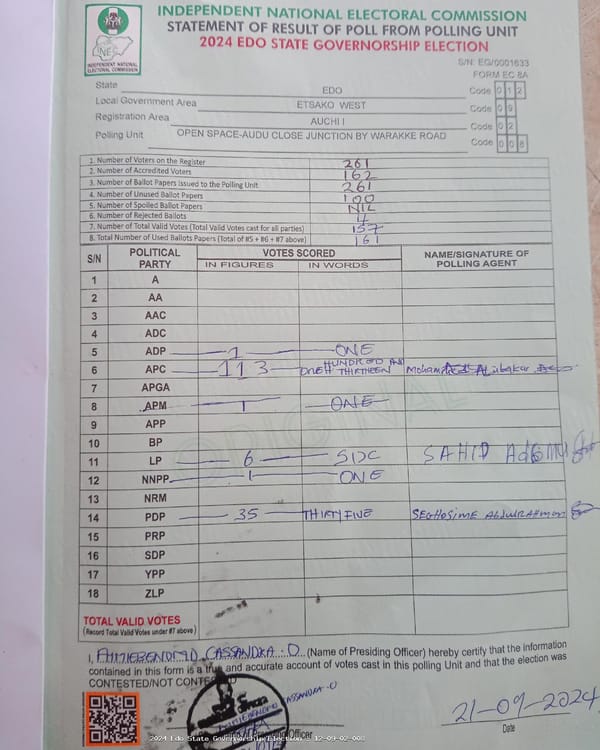 INDEPENDENT NATIONAL ELECTORAL COMMISSION
STATEMENT OF RESULT OF POLL FROM POLLING UNIT
2024 EDO STATE GOVERNORSHIP ELECTION
INDEPENDENT NATIONAL
ELECTORAL COMMISSION
S/N: EG/0001633
FORM EC 8A
State EDO Code 0 1 2
Local Government Area ETSAKO WEST Code 0 9
Registration Area AUCHI I Code 0 2
Polling Unit OPEN SPACE-AUDU CLOSE JUNCTION BY WARAKKE ROAD Code 0 0 8
1. Number of Voters on the Register 261
2. Number of Accredited Voters 162
3. Number of Ballot Papers Issued to the Polling Unit 261
4. Number of Unused Ballot Papers 100
5. Number of Spoiled Ballot Papers NIL
6. Number of Rejected Ballots 4
7. Number of Total Valid Votes (Total Valid Votes cast for all parties) 157
8. Total Number of Used Ballots Papers (Total of #5 + #6 + #7 above) 161
S/N POLITICAL PARTY VOTES SCORED NAME/SIGNATURE OF POLLING AGENT
IN FIGURES IN WORDS
1 A
2 AA
3 AAC
4 ADC
5 ADP 1 ONE
6 APC 113 ONE HUNDRED AND THIRTEEN
7 APGA
8 APM 1 ONE
9 APP
10 BP
11 LP 6 SIX SAHID
12 NNPP 1 ONE
13 NRM
14 PDP 35 THIRTY FIVE SEGHOSIME AbdulRAHman
15 PRP
16 SDP
17 YPP
18 ZLP
TOTAL VALID VOTES
(Record Total Valid Votes under #7 above)
I, CASSANDRA .O (Name of Presiding Officer) hereby certify that the information
contained in this form is a true and accurate account of votes cast in this polling Unit and that the election was
CONTESTED/NOT CONTESTED
CASSANDRA .O
21-09-2024
Officer
Date
2024 Edo State Governorship Election - 12-09-02-008
ORIGINAL